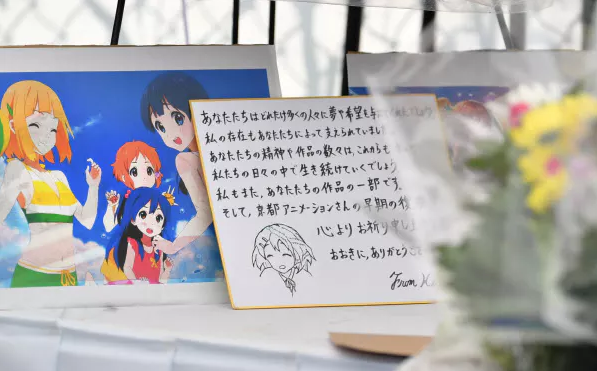 あなたたちはどれだけ多くの人々に夢や希望を与
私の存在もあなたたちによって支えられていました
あなたたちの精神や作品の数々は、これからも
私たちの日々の中で生き続けていくでしょう
私もまた、あなたたちの作品の一部です
そして、京都アニメーションさんの早期の復
心よりお祈り申し
おおきに、ありがとう
From